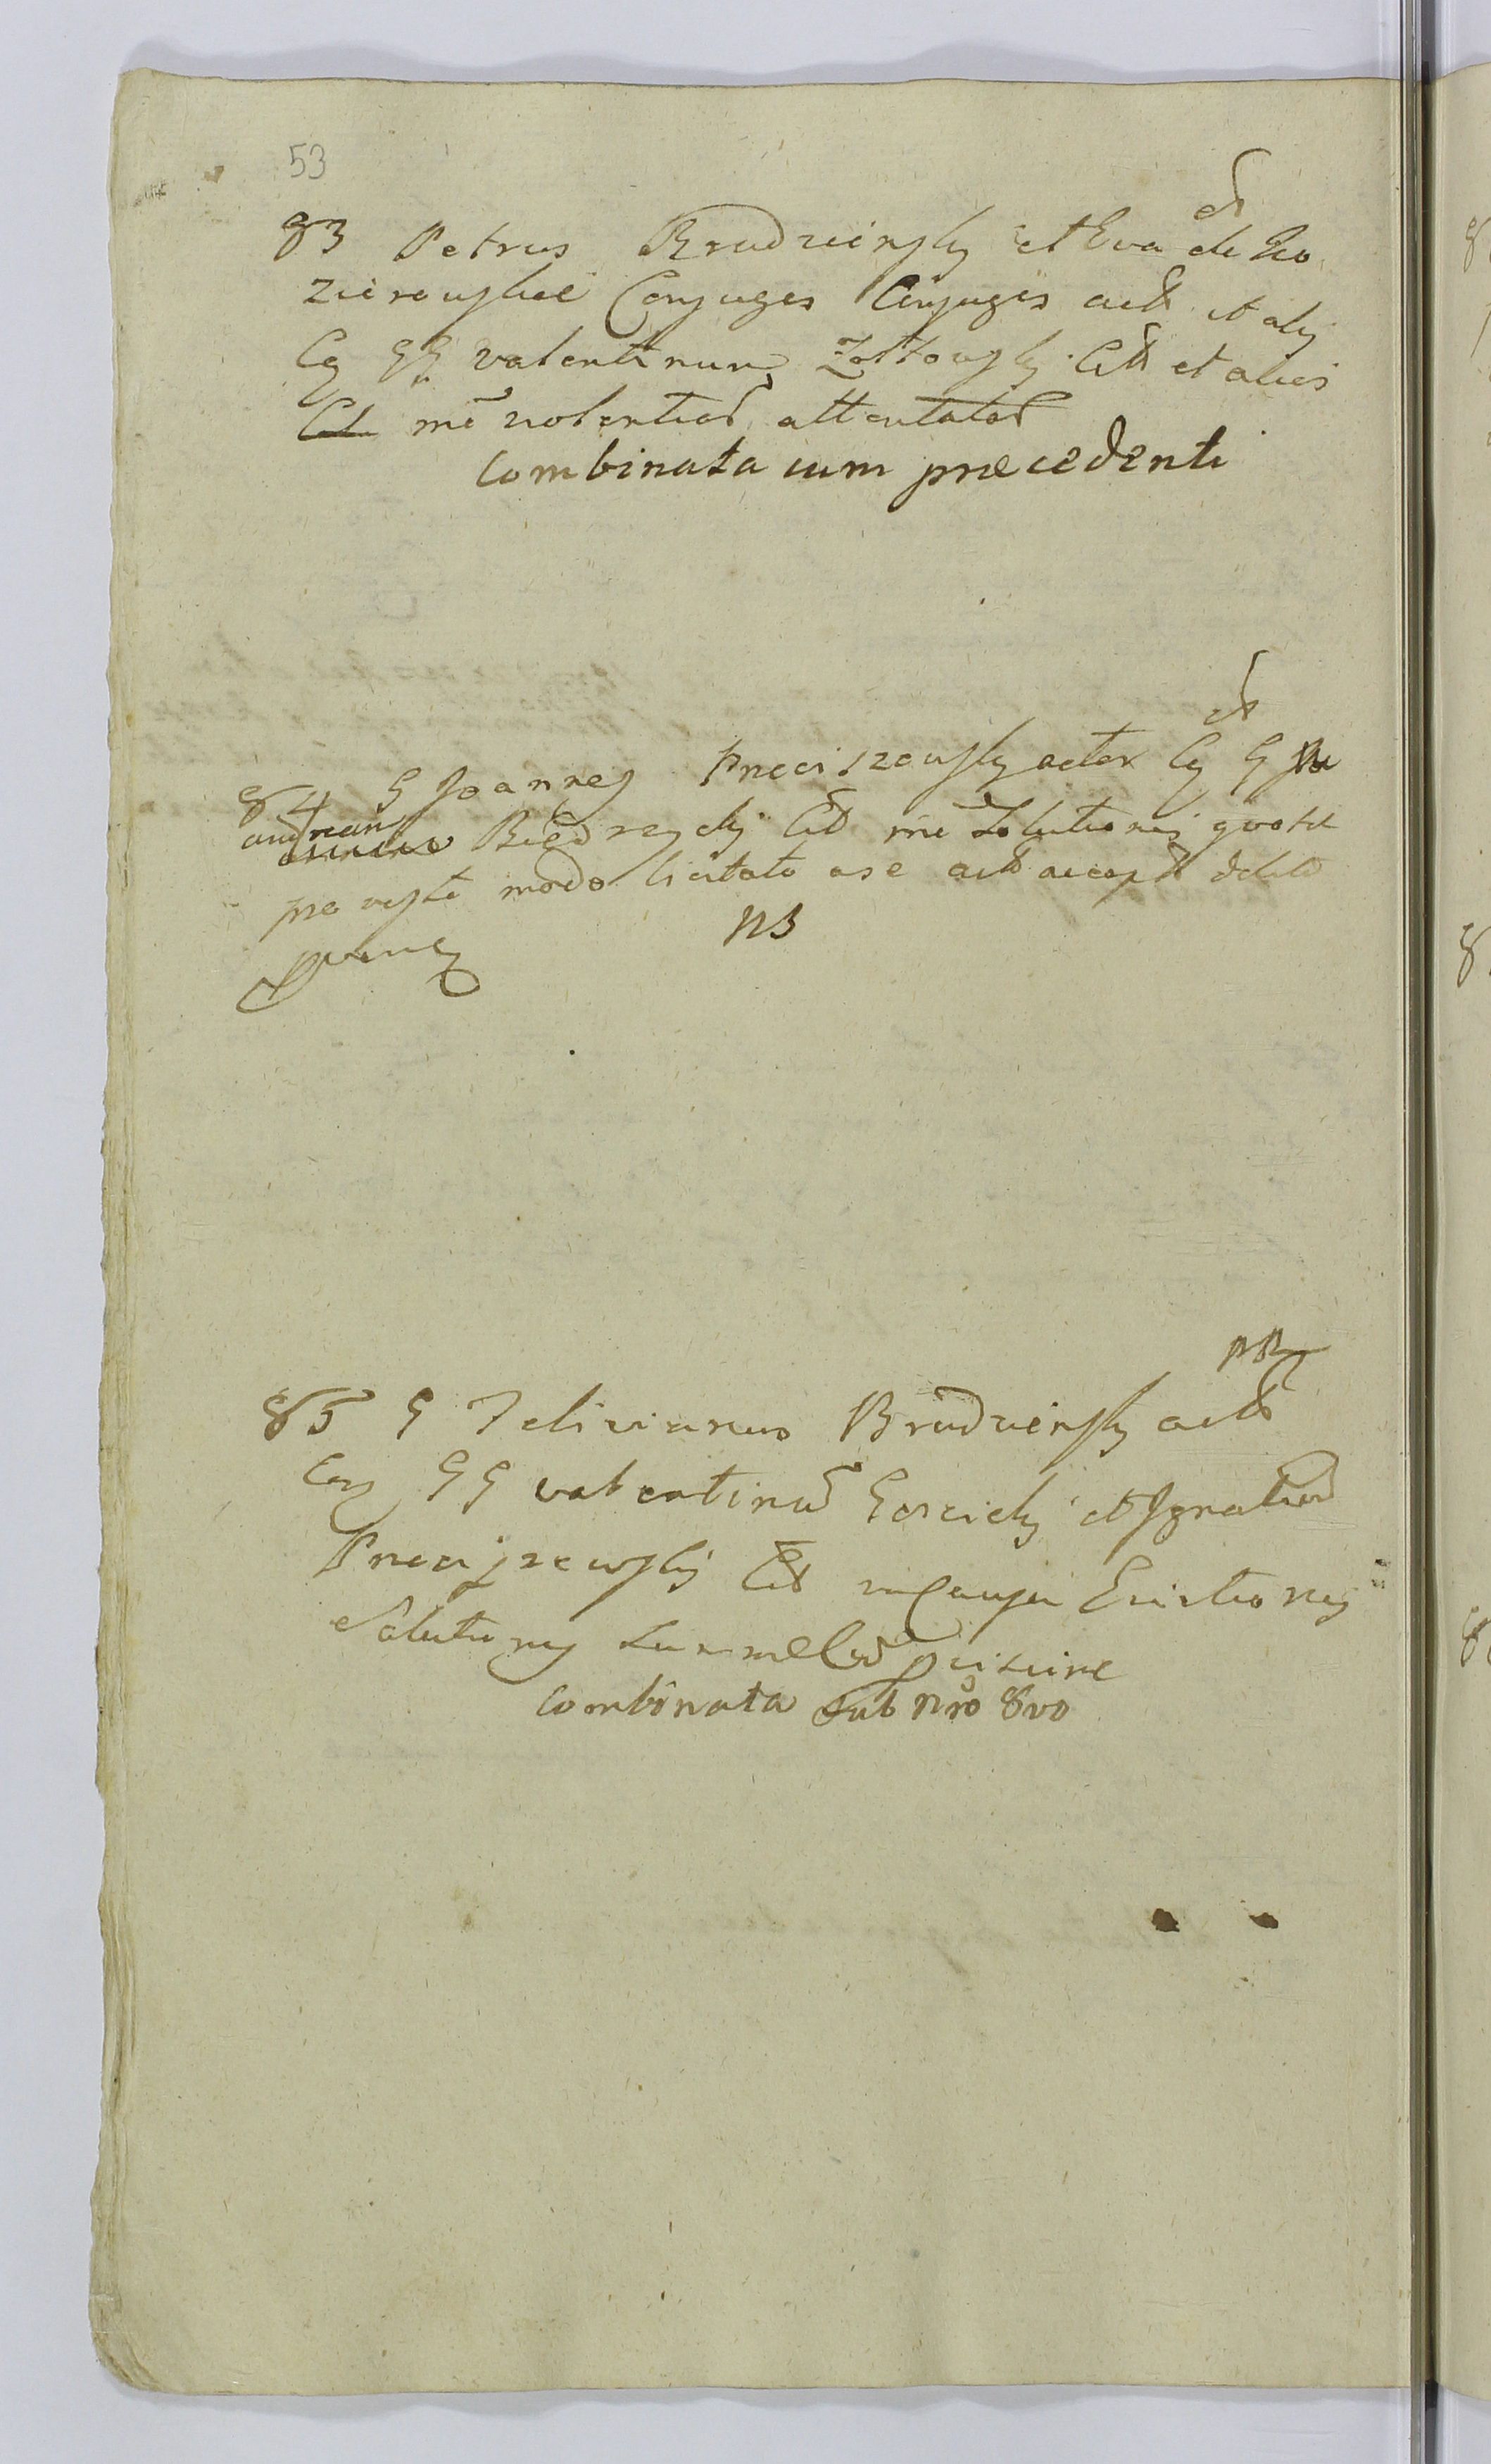 53
83 Petrus Brudzinsky et Eva de Ko
zierowskie Conjuges Conjuges act et alij
Cg GG valentinum Zołtowsky Citt et alios
me violentiar attentatar
combinata cum præcedenti
84 G Joannes Preciszewsky actor Cg G
andream Biedrzycky Citt me Solutionis quota
pro veste modo licitato a se act accept debit
NB
85 G Felicianus Brudzinsky act
Cg GG valentinu Goscicky et Ignatiu
Preciszewsky Citt in Causa Evictionis
Solutionis
combinata sub Nro 8vo